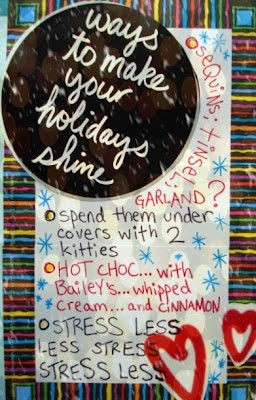 ways
to make
your
holidays
shine
sequins, tinsel,
GARLAND?
spend them under
covers with 2
kitties
HOT CHOC... with
Bailey's... whipped
Cream... and CINNAMON
STRESS LESS
LESS STRESS
STRESS LESS